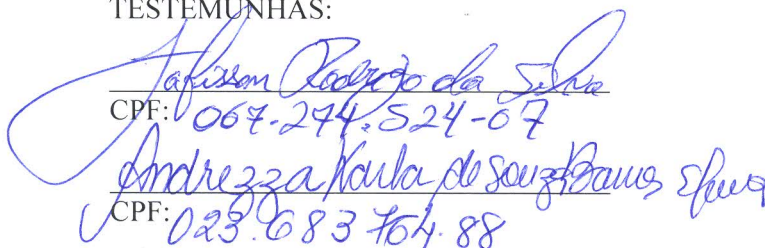 TESTEMUNHAS:
Jafisson Rodrigo da Silva
CPF: 067.274.524-07
Andrezza Karla de Souza Barros Silva
CPF: 023.683 764.88